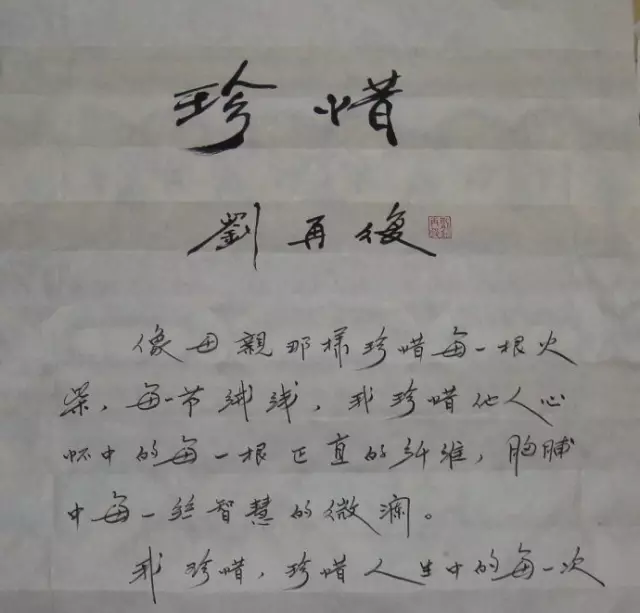 珍惜
劉再復
像母親那样珍惜每一根火
柴，每一节绒线，我珍惜他人心
怀中的每一根正直的纤维，胸脯
中每一丝智慧的微澜。
我珍惜，珍惜人生中的每一次